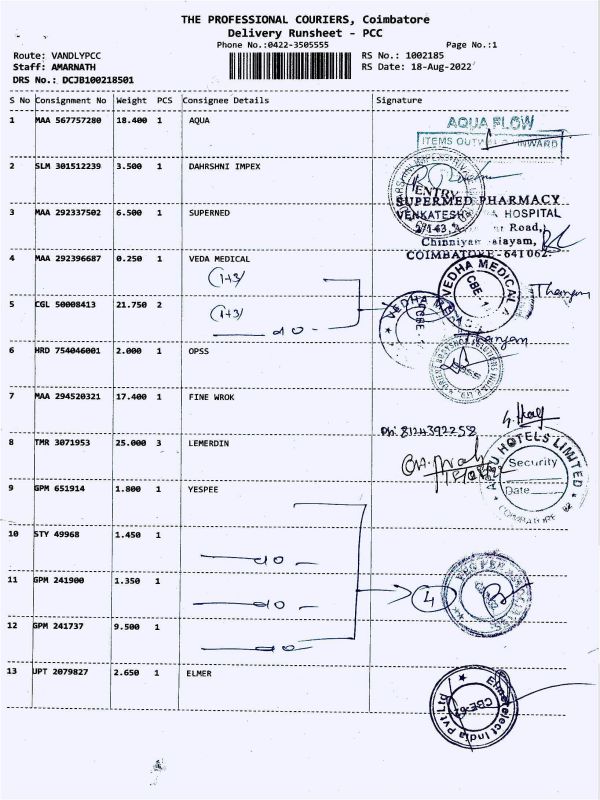 THE PROFESSIONAL COURIERS, Coimbatore
Delivery Runsheet - PCC
Phone No.:0422-3505555 Page No.:1
Route: VANDLYPCC RS No.: 1002185
Staff: AMARNATH RS Date: 18-Aug-2022
DRS No.: DCJB100218501
S No Consignment No Weight PCS Consignee Details Signature
1 MAA 567757280 18.400 1 AQUA
AQUA FLOW
ITEMS OUTWARD INWARD
2 SLM 301512239 3.500 1 DAHRSHNI IMPEX
ENTRY
3 MAA 292337502 6.500 1 SUPERNED
SUPERMED PHARMACY
HOSPITAL
Road,
COIMBATORE-641 062.
4 MAA 292396687 0.250 1 VEDA MEDICAL
(1+3)
VEDHA MEDICAL
CBE
5 CGL 50008413 21.750 2
(1+3)
do
VEDHA
CBE
6 HRD 754046001 2.000 1 OPSS
OPSS
7 MAA 294520321 17.400 1 FINE WROK
Ph: 8124392258
8 TMR 3071953 25.000 3 LEMERDIN
HOTELS LIMITED
Security
Date
COIMBATORE
9 GPM 651914 1.800 1 YESPEE
10 STY 49968 1.450 1
do
11 GPM 241900 1.350 1
do
4
12 GPM 241737 9.500 1
do
13 UPT 2079827 2.650 1 ELMER
Elmeelect India Pvt Ltd
CBE-62